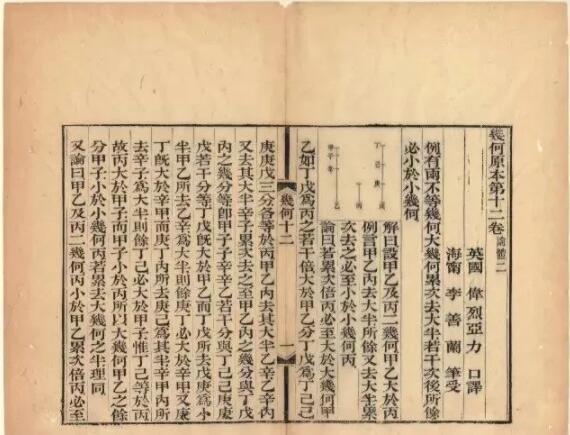 幾何原本第十二卷 論體二
英國 偉烈亞力 口譯
海甯 李善蘭 筆受
例有兩不等幾何大幾何累次去大半若干次後所餘
必小於小幾何
解曰設甲乙及丙二幾何甲乙大於丙
例言甲乙內去大半所餘又去大半累
次去之必至小於小幾何丙
論曰若累次倍丙必至大於大幾何甲
乙如丁戊爲丙之若干倍大於甲乙分丁戊爲丁己己
庚庚戊三分各等於丙甲乙內去其大半乙辛乙辛內
又去其大半辛子累次去之至甲乙內之幾分與丁戊
內之幾分等卽甲子子辛辛乙若干分與丁己己庚庚
戊若干分等丁戊旣大於甲乙而丁戊所去戊庚爲小
半甲乙所去乙辛爲大半則餘丁庚必大於辛甲又庚
丁旣大於辛甲而庚丁內所去庚己爲其半辛甲內所
去辛子爲大半則餘丁己必大於甲子惟丁己等於丙
故丙大於甲子而甲子小於丙所以大幾何甲乙之餘
分甲子小於小幾何丙若累去大幾何之半理同
又論曰甲乙及丙二幾何丙小於甲乙累次倍丙必至
丁己庚戊
甲子辛乙
丙
幾何十二
一